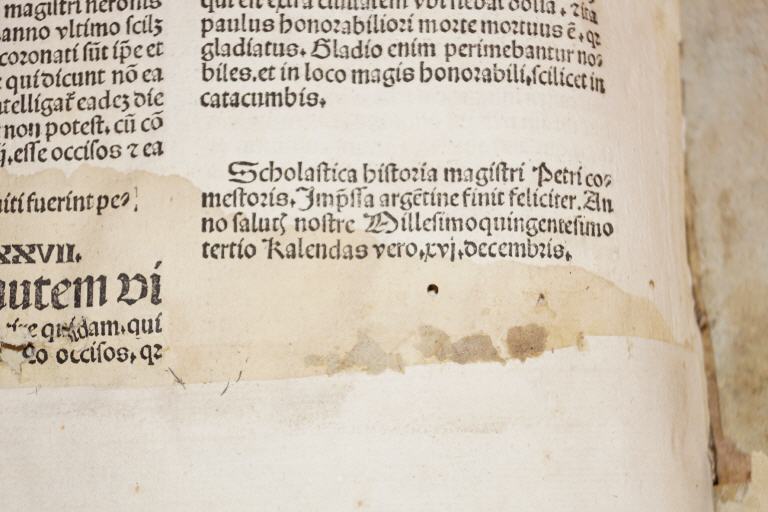 magistri neronis
anno vltimo scilꝫ
coronati sūt ip̄e et
qui dicunt nō ea
eadeꝫ die
non potest. cū cō
esse occisos ⁊ ea
fuerint pe⸗
XXVII.
autem vi
quidam. qui
occisos. qꝛ
paulus honorabiliori morte mortuus ē. qꝛ
gladiatus. Gladio enim perimebantur no⸗
biles. et in loco magis honorabili. scilicet in
catacumbis.
Scholastica historia magistri Petri co⸗
mestoris. Imp̄ssa argētine finit feliciter. An
no salutꝭ nostre Millesimoquingentesimo
tertio Kalendas vero. xvj. decembris.